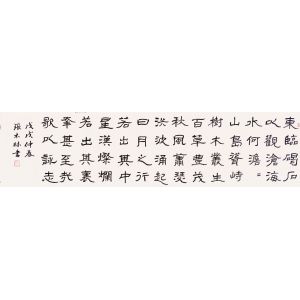 東臨碣石
以觀滄海
水何澹〻
山島聳峙
樹木叢生
百草豐茂
秋風蕭瑟
洪波涌起
日月之行
若出其中
星漢燦爛
若出其裏
幸甚至哉
歌以詠志
戊戌仲春
張木林書